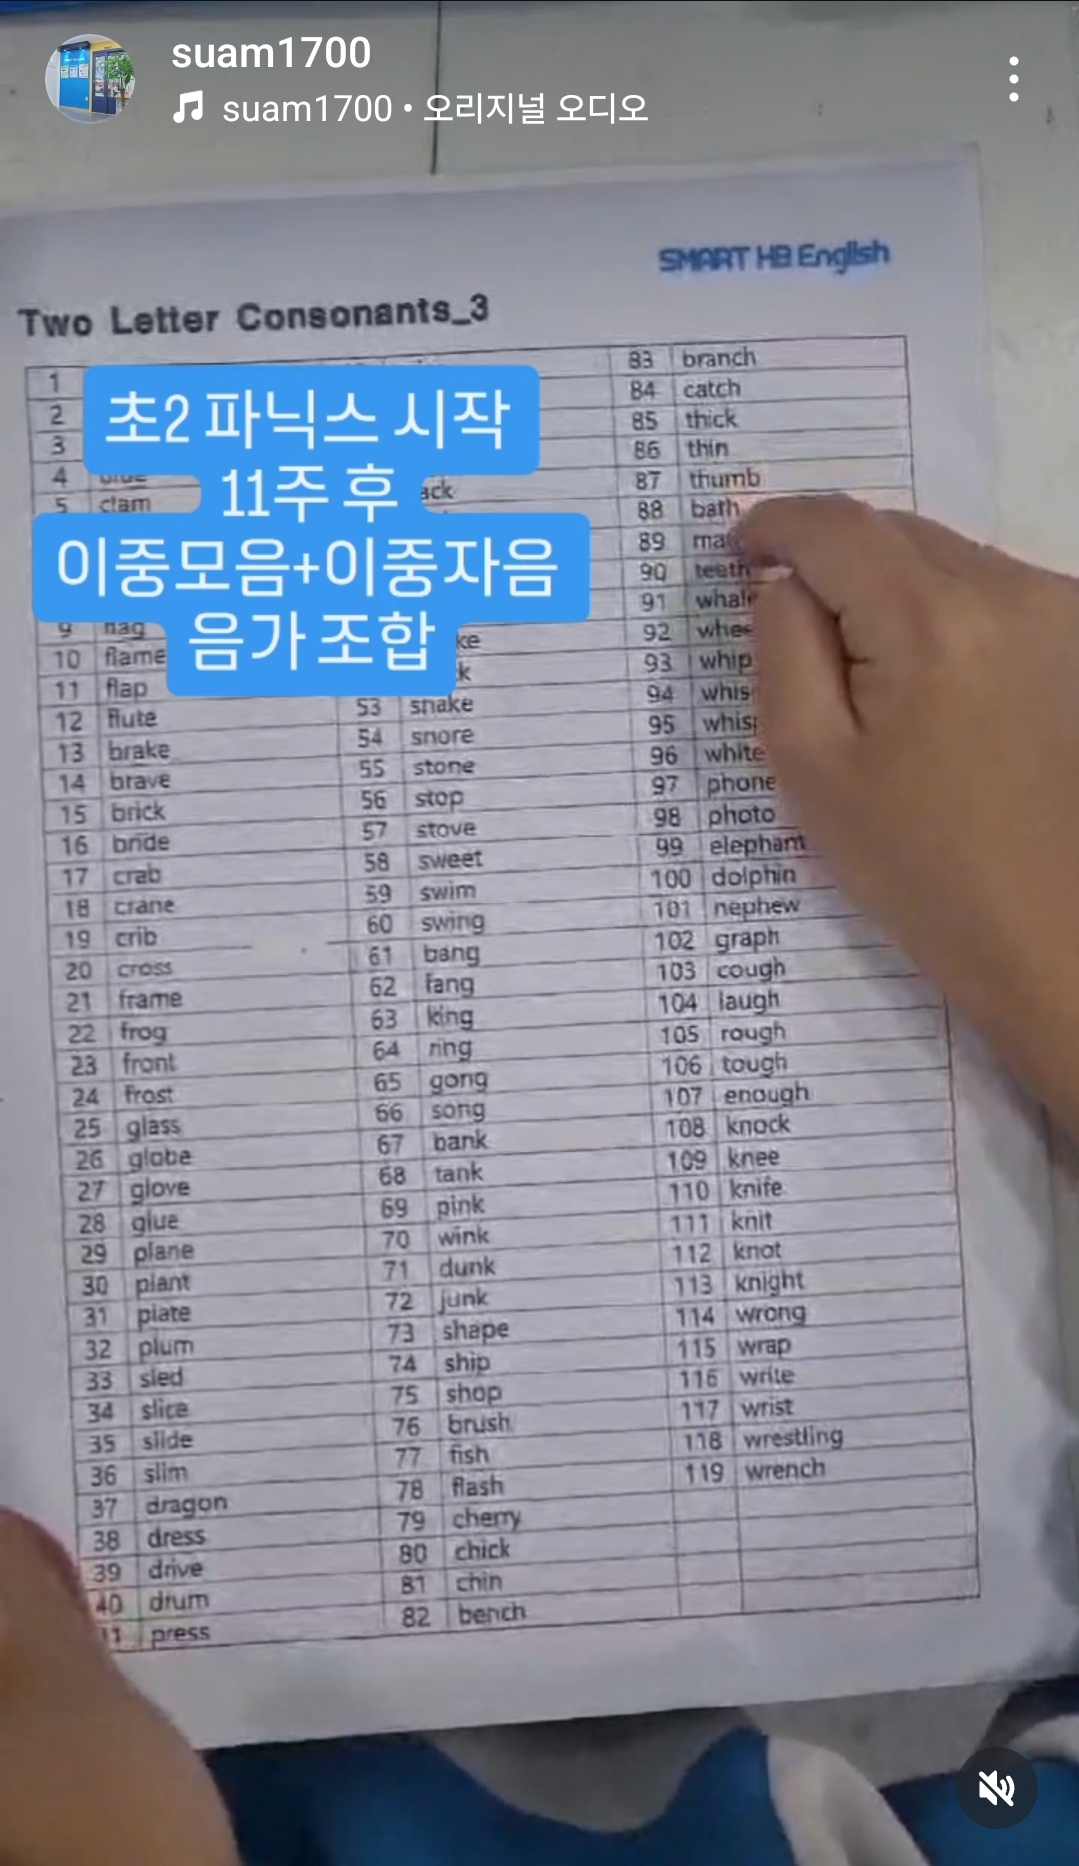 suam1700
suam1700 • 오리지널 오디오
SMART HB English
Two Letter Consonants_3
초2 파닉스 시작
11주 후
이중모음+이중자음
음가 조합
1
2
3
4
5 clam
9 flag
10 flame
11 flap
12 flute
13 brake
14 brave
15 brick
16 bride
17 crab
18 crane
19 crib
20 cross
21 frame
22 frog
23 front
24 frost
25 glass
26 globe
27 glove
28 glue
29 plane
30 plant
31 plate
32 plum
33 sled
34 slice
35 slide
36 slim
37 dragon
38 dress
39 drive
40 drum
press
ack
ke
k
53 snake
54 snore
55 stone
56 stop
57 stove
58 sweet
59 swim
60 swing
61 bang
62 fang
63 king
64 ring
65 gong
66 song
67 bank
68 tank
69 pink
70 wink
71 dunk
72 junk
73 shape
74 ship
75 shop
76 brush
77 fish
78 flash
79 cherry
80 chick
81 chin
82 bench
83 branch
84 catch
85 thick
86 thin
87 thumb
88 bath
89
90 teeth
91 whale
92
93 whip
94
95
96 white
97 phone
98 photo
99 elephant
100 dolphin
101 nephew
102 graph
103 cough
104 laugh
105 rough
106 tough
107 enough
108 knock
109 knee
110 knife
111 knit
112 knot
113 knight
114 wrong
115 wrap
116 write
117 wrist
118 wrestling
119 wrench